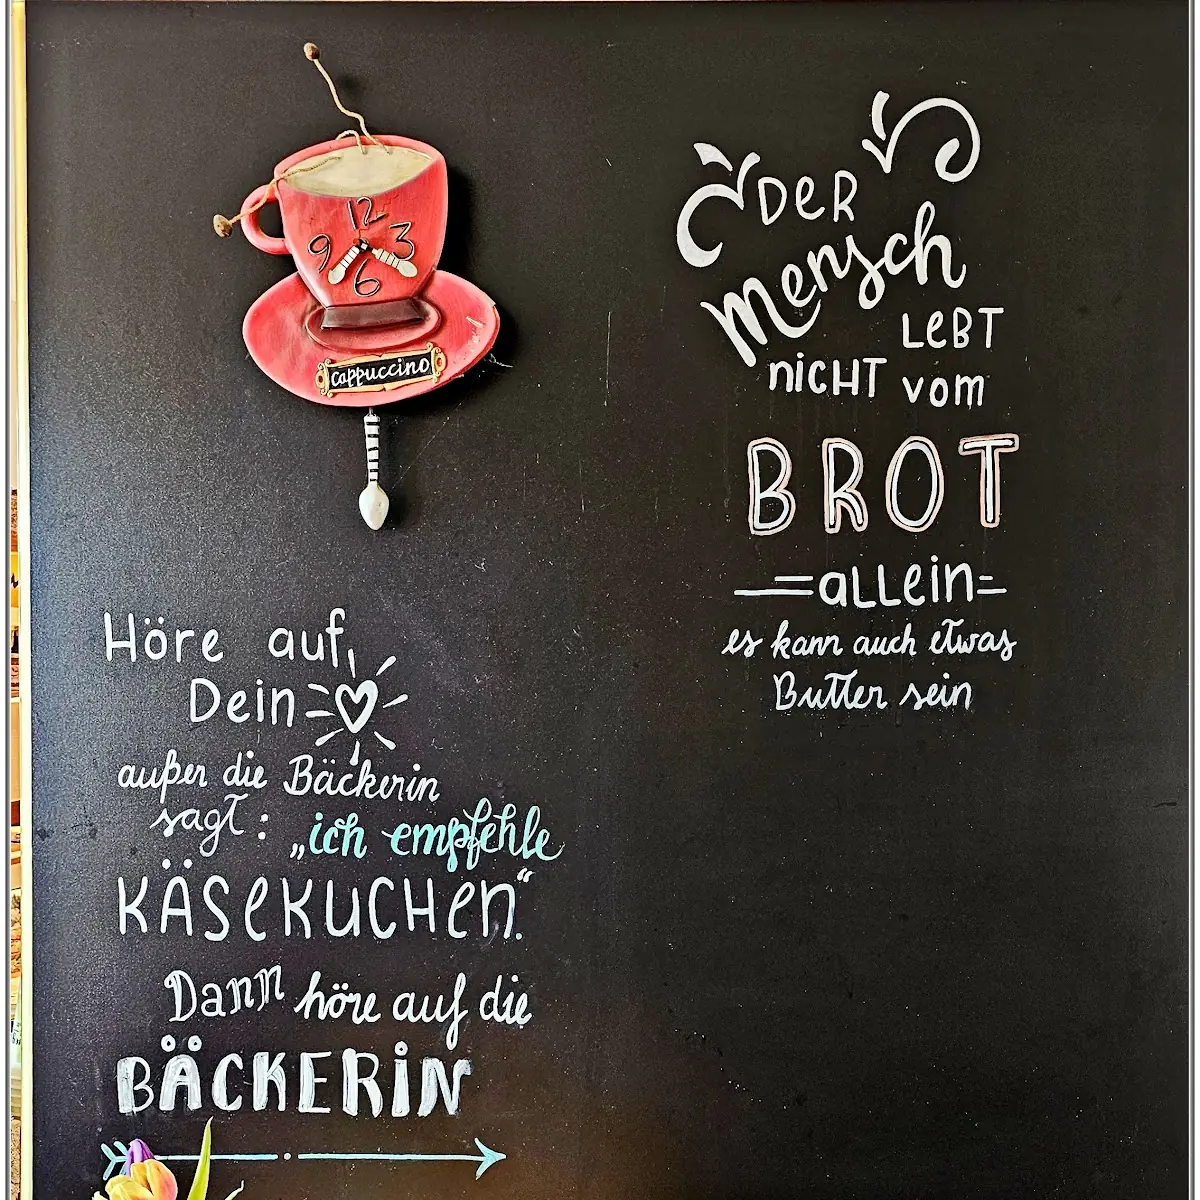 12
9 3
6
cappuccino
DER
Mensch
LEBT
NICHT vom
BROT
allein
es kann auch etwas
Butter sein
Höre auf
Dein
außer die Bäckerin
sagt: „ich empfehle
KÄSEKUCHEN."
Dann höre auf die
BÄCKERIN